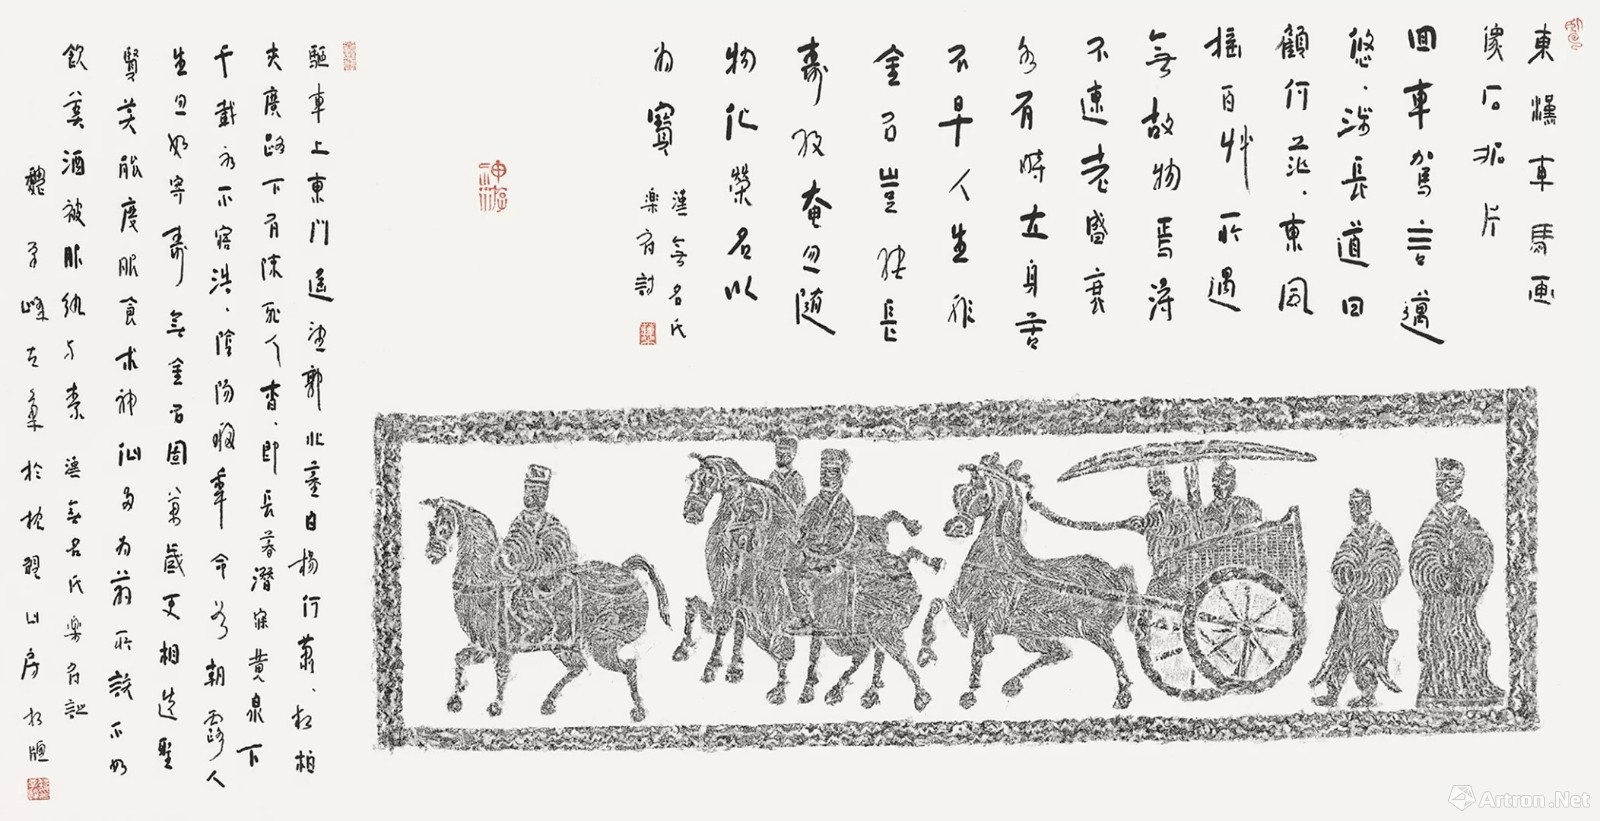 東漢車馬画
像石拓片
回車駕言邁
悠、涉長道四
顧何茫、東風
搖百艸所遇
無故物焉得
不速老盛衰
各有時立身苦
不早人生非
金石豈能長
壽考奄忽隨
物化榮名以
為寶 漢無名氏
樂府詩
神游
驅車上東門遙望郭北墓白楊何蕭、松柏
夾廣路下有陳死人杳、即長暮潛寐黄泉下
千載永不寤浩、陰陽移年命如朝露人
生忽如寄壽無金石固萬歲更相送聖
賢莫能度服食求神仙多為藥所誤不如
飲美酒被服紈与素 漢無名氏樂府詩
峰左筆於枕碧山房
Artron.Net